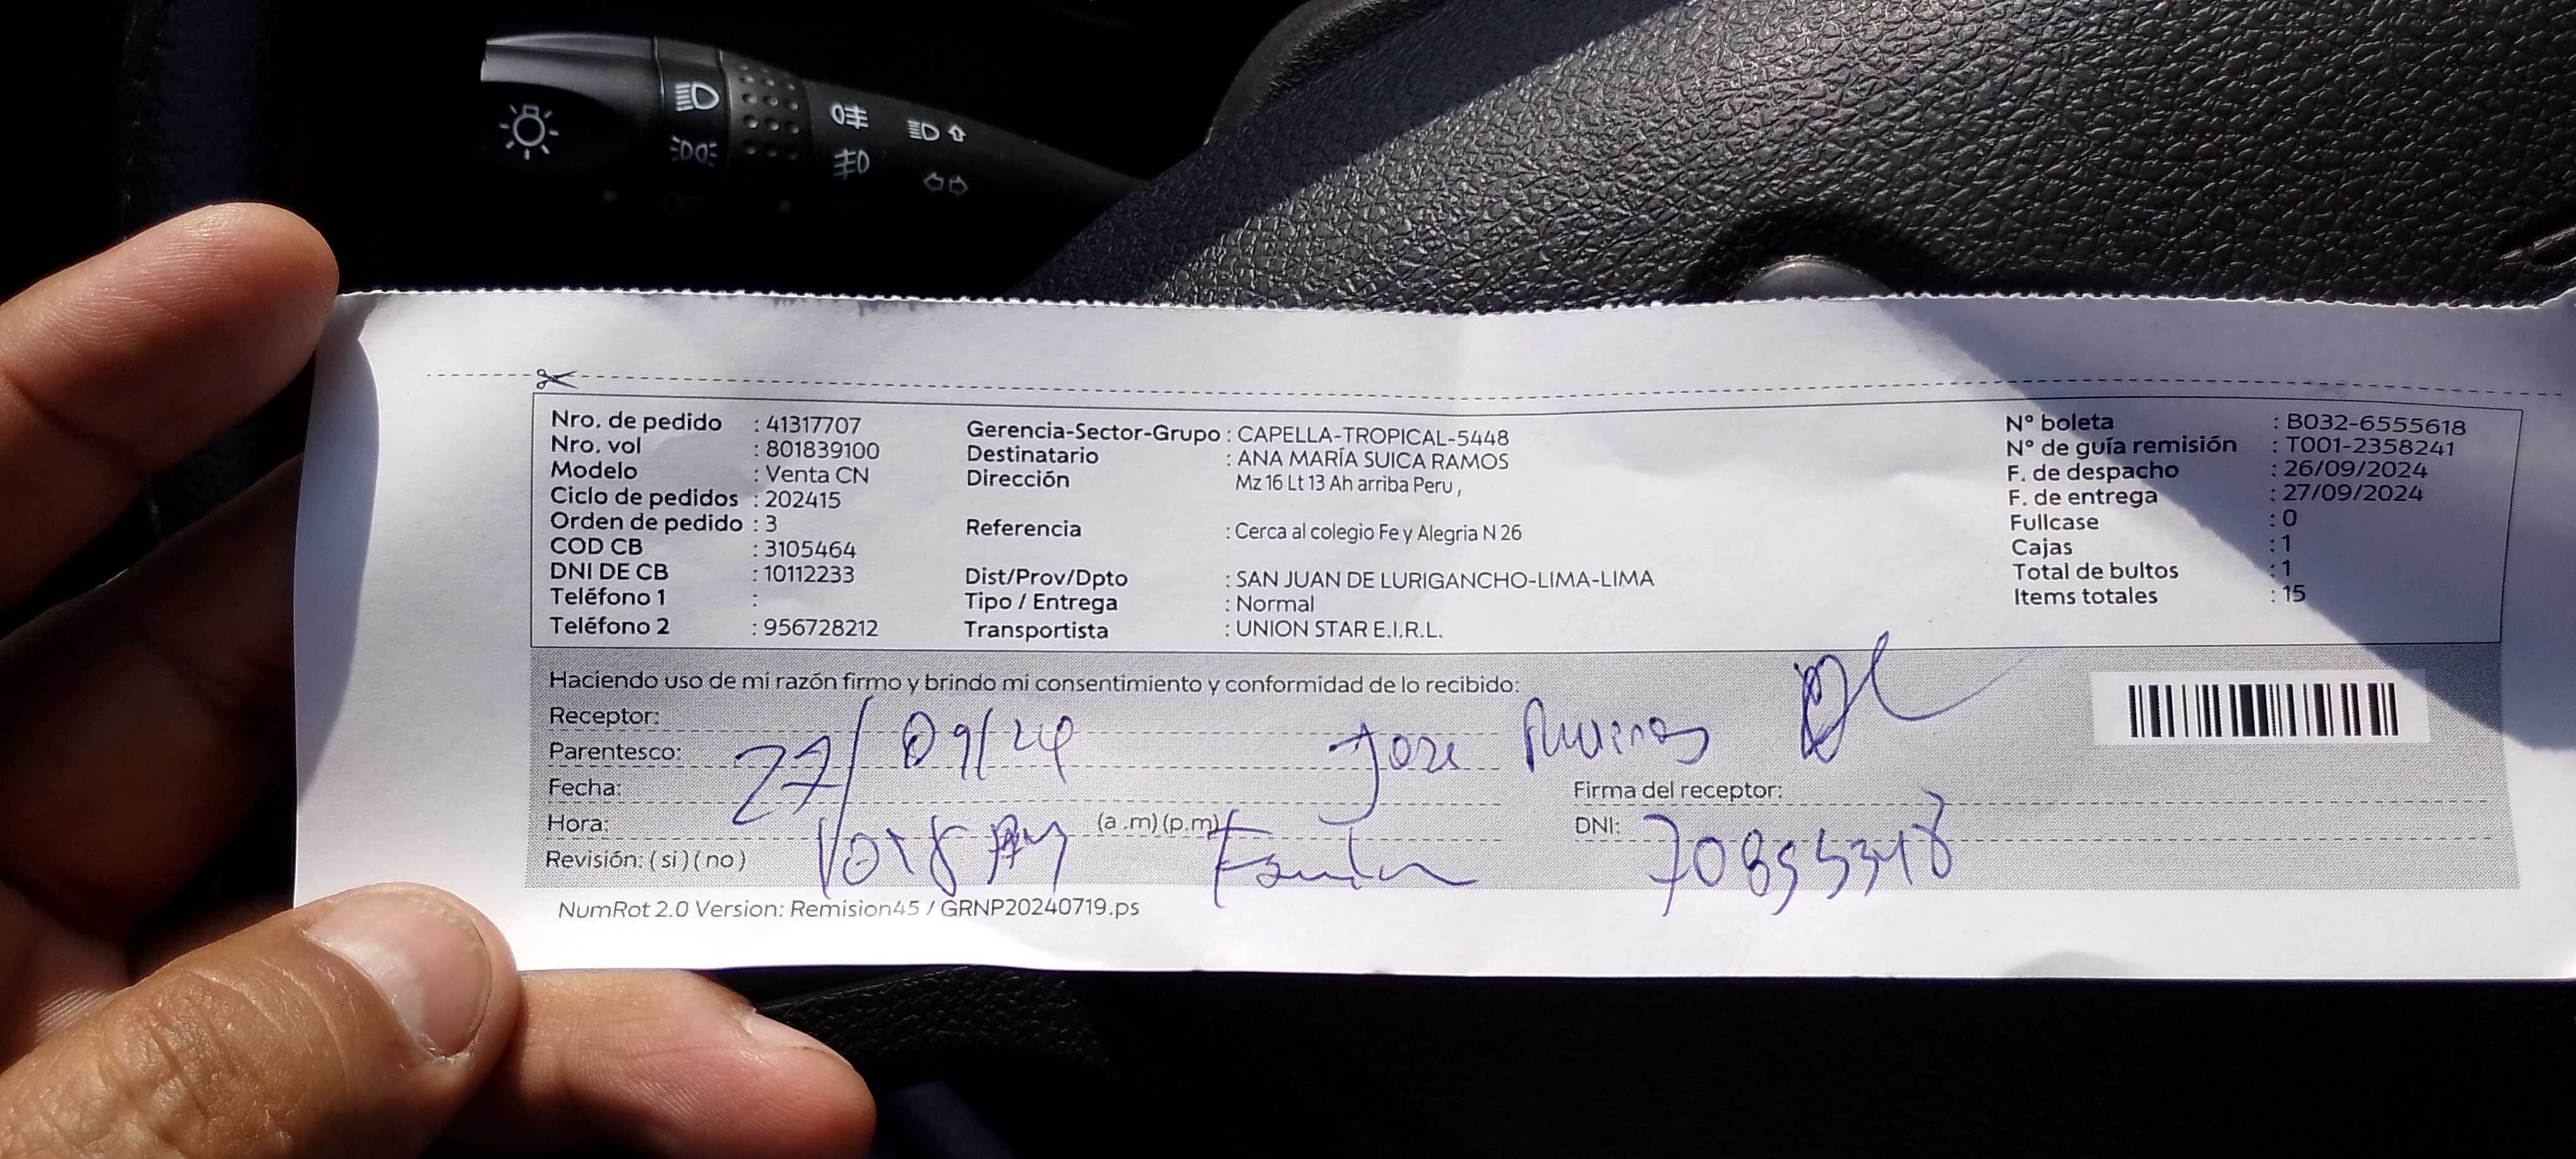 OFF
Nro. de pedido : 41317707
Nro. vol : 801839100
Modelo : Venta CN
Ciclo de pedidos : 202415
Orden de pedido : 3
COD CB : 3105464
DNI DE CB : 10112233
Teléfono 1 :
Teléfono 2 : 956728212
Gerencia-Sector-Grupo : CAPELLA-TROPICAL-5448
Destinatario : ANA MARÍA SUICA RAMOS
Dirección Mz 16 Lt 13 Ah arriba Peru ,
Referencia : Cerca al colegio Fe y Alegria N 26
Dist/Prov/Dpto : SAN JUAN DE LURIGANCHO-LIMA-LIMA
Tipo / Entrega : Normal
Transportista : UNION STAR E.I.R.L.
N° boleta : B032-6555618
N° de guía remisión : T001-2358241
F. de despacho : 26/09/2024
F. de entrega : 27/09/2024
Fullcase : 0
Cajas : 1
Total de bultos : 1
Items totales : 15
Haciendo uso de mi razón firmo y brindo mi consentimiento y conformidad de lo recibido:
Receptor:
Parentesco:
27/09/24 Jose
Fecha:
Firma del receptor:
Hora: (a .m) (p.m)
DNI:
Revisión: ( si ) ( no )
NumRot 2.0 Version: Remision45 / GRNP20240719.ps